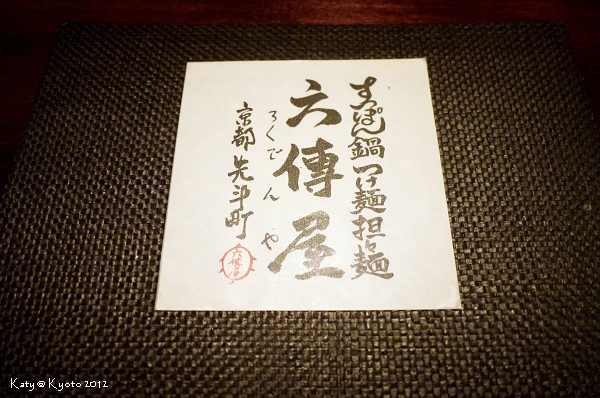 すっぽん鍋つけ麺担々麺
六傳屋
ろくでんや
京都先斗町
六傳屋
Katy @ Kyoto 2012